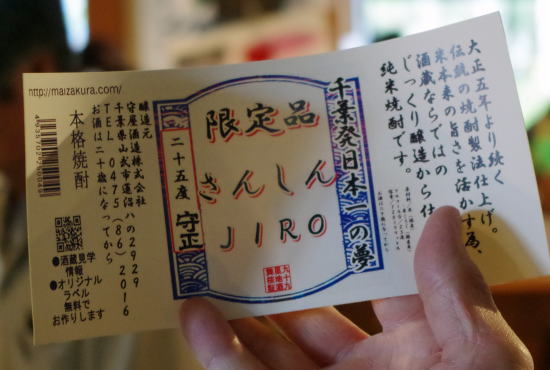 大正五年より続く
伝統の焼酎製法仕上げ。
米本来の旨さを活かす為、
酒蔵ならではの
じっくり醸造から仕
純米焼酎です。
千葉発日本一の夢
限定品
さんしん
JIRO
二十五度 守正
醸造元
守屋酒造株式会社
千葉県山武市蓮沼ハの2929
TEL 0475(86)2016
お酒は二十歳になってから
本格焼酎
http://maizakura.com/
●酒蔵見学
情報
●オリジナル
ラベル
無料で
お作りします